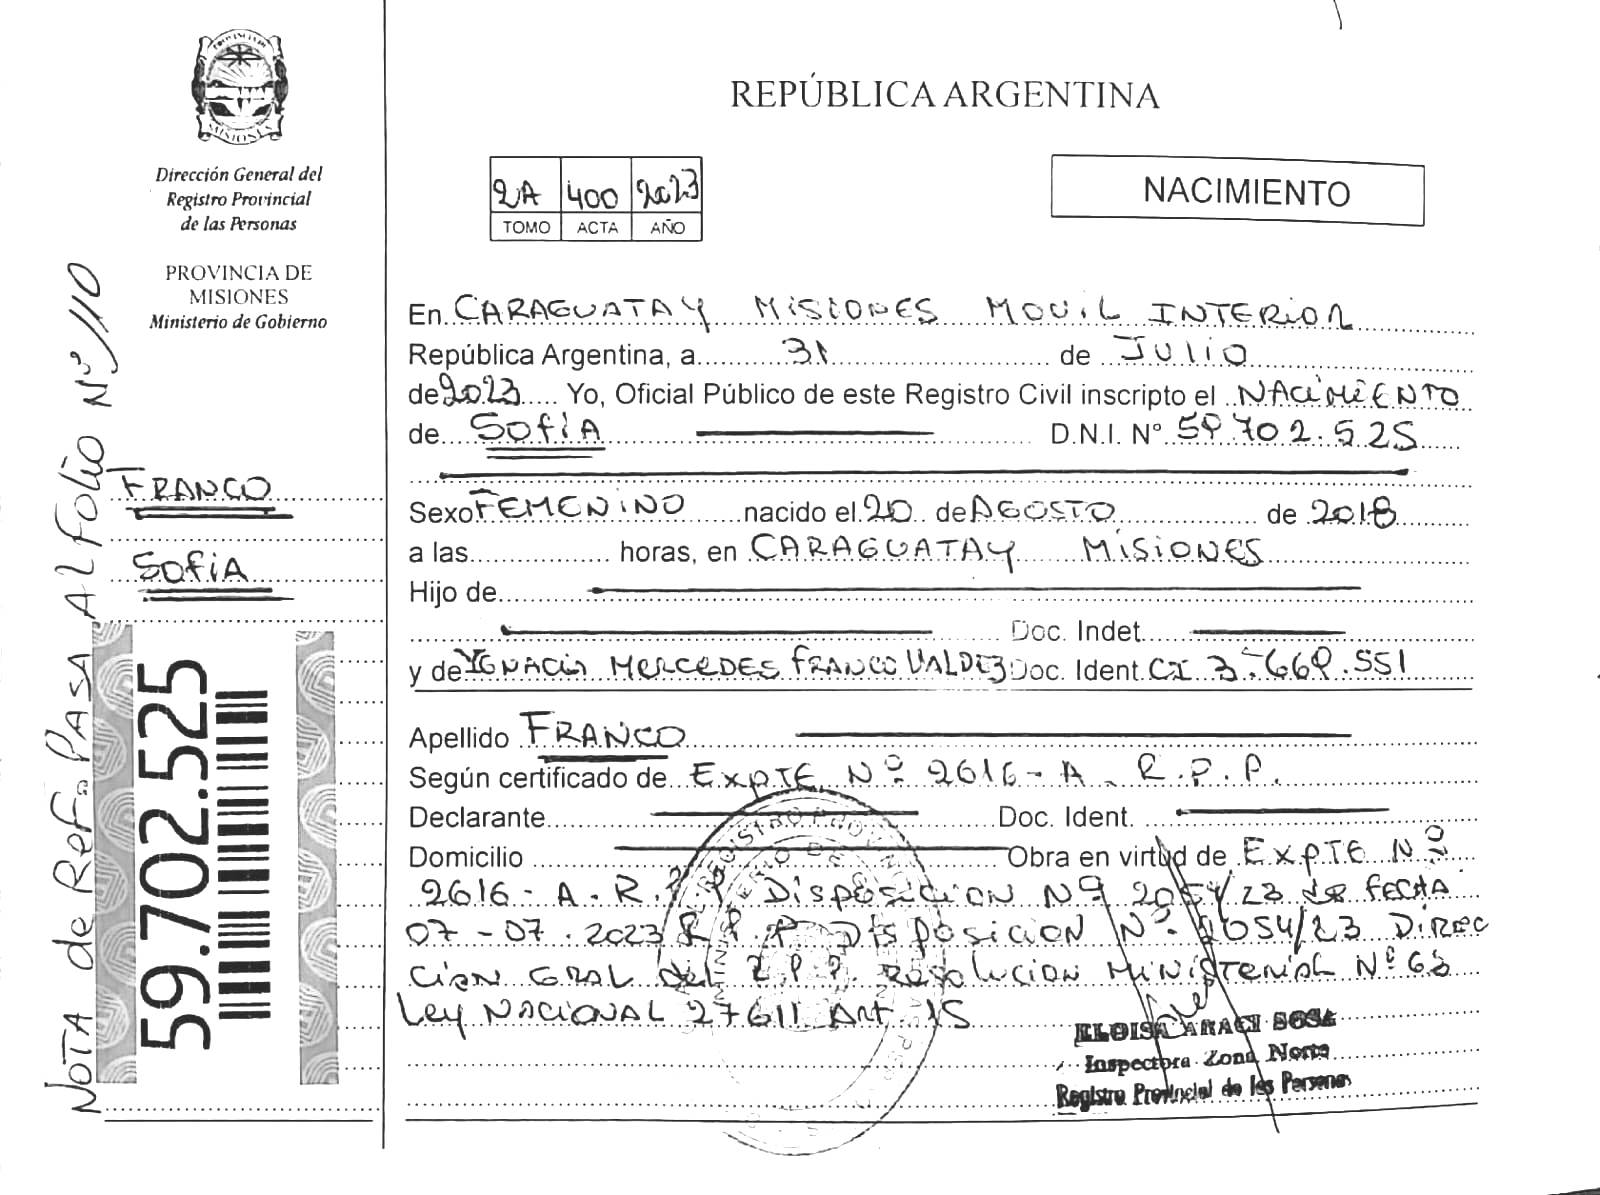 PROVINCIA DE
MISIONES
Dirección General del
Registro Provincial
de las Personas
PROVINCIA DE
MISIONES
Ministerio de Gobierno
NOTA de Ref. PASA AL FOLIO Nº 110
FRANCO
SOFIA
59.702.525
REPÚBLICA ARGENTINA
2A 400 2023
TOMO ACTA AÑO
NACIMIENTO
En CARAGUATAY MISIONES MOVIL INTERIOR
República Argentina, a 31 de JULIO
de 2023 Yo, Oficial Público de este Registro Civil inscripto el NACIMIENTO
de SOFIA D.N.I. Nº 59.702.525
Sexo FEMENINO nacido el 20 de AGOSTO de 2018
a las horas, en CARAGUATAY MISIONES
Hijo de
Doc. Indet.
y de MERCEDES FRANCO VALDEZ Doc. Ident. CI 3.669.551
Apellido FRANCO
Según certificado de EXPTE Nº 2616-A-R.P.P.
Declarante Doc. Ident.
Domicilio Obra en virtud de EXPTE Nº
2616-A.R.P.P DISPOSICION Nº 2054/23 de FECHA
07-07-2023 R.P.P. DISPOSICION Nº 2054/23 DIREC
CION GRAL del R.P.P. Resolucion MINISTERIAL Nº 63
Ley NACIONAL 27611 Art 15
ELOISA ARACI SOSA
Inspectora Zona Norte
Registro Provincial de las Personas